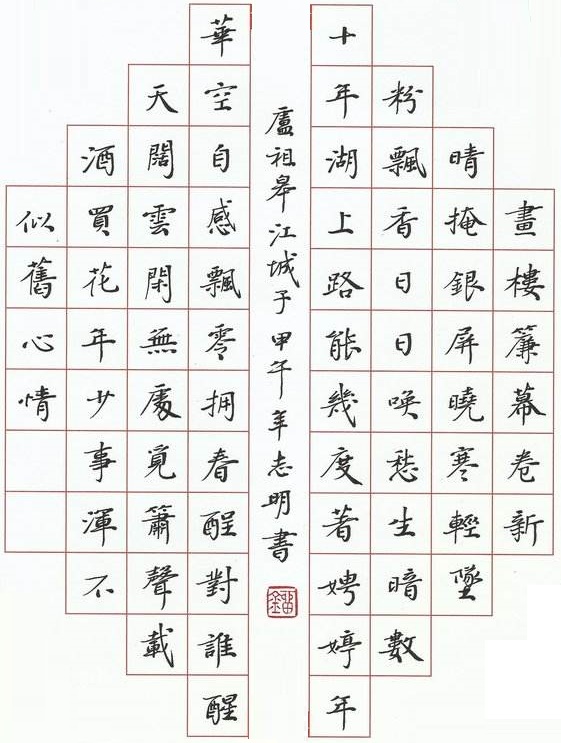 畫樓簾幕卷新
晴掩銀屏曉寒輕墜
粉飄香日日喚愁生暗數
十年湖上路能幾度著娉婷年
盧祖皋江城子甲午年志明書
華空自感飄零拥春醒對誰醒
天闊雲閑無處覓簫聲載
酒買花年少事渾不
似舊心情